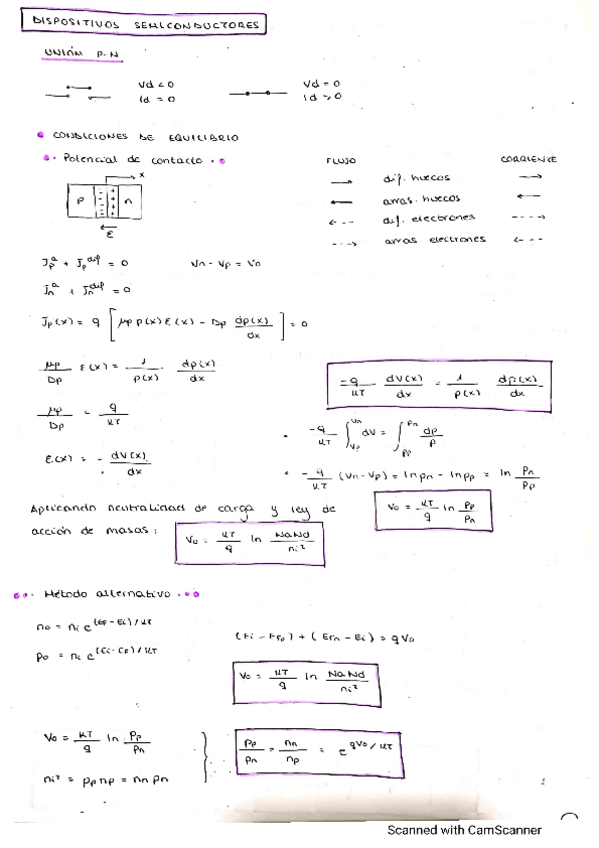 DISPOSITIVOS SEMICONDUCTORES
UNIÓN P-N
Vd < 0
Id = 0
Vd = 0
Id > 0
CONDICIONES DE EQUILIBRIO
Potencial de contacto
x
p - + n
ε
FLUJO CORRIENTE
→ dif. huecos →
← arras. huecos ←
←-- dif. electrones --→
--→ arras electrones ←--
Jp^a + Jp^dif = 0 Vn - Vp = Vo
Jn^a + Jn^dif = 0
Jp(x) = q [ μp p(x) ε(x) - Dp dp(x)/dx ] = 0
μp/Dp ε(x) = 1/p(x) dp(x)/dx
-q/KT dV(x)/dx = 1/p(x) dp(x)/dx
μp/Dp = q/KT
-q/KT ∫_Vp^Vn dV = ∫_Pp^Pn dp/p
ε(x) = - dV(x)/dx
- q/KT (Vn - Vp) = ln pn - ln pp = ln Pn/Pp
Aplicando neutralidad de carga y ley de
acción de masas:
Vo = KT/q ln NaNd/ni²
Vo = KT/q ln Pp/Pn
Método alternativo
no = ni e^(EF - Ei)/KT
po = ni e^(Ei - EF)/KT
(Ei - EFp) + (EFn - Ei) = qVo
Vo = KT/q ln NaNd/ni²
Vo = KT/q ln Pp/Pn
ni² = pp np = nn pn
Pp/Pn = nn/np = e^qVo/KT
Scanned with CamScanner